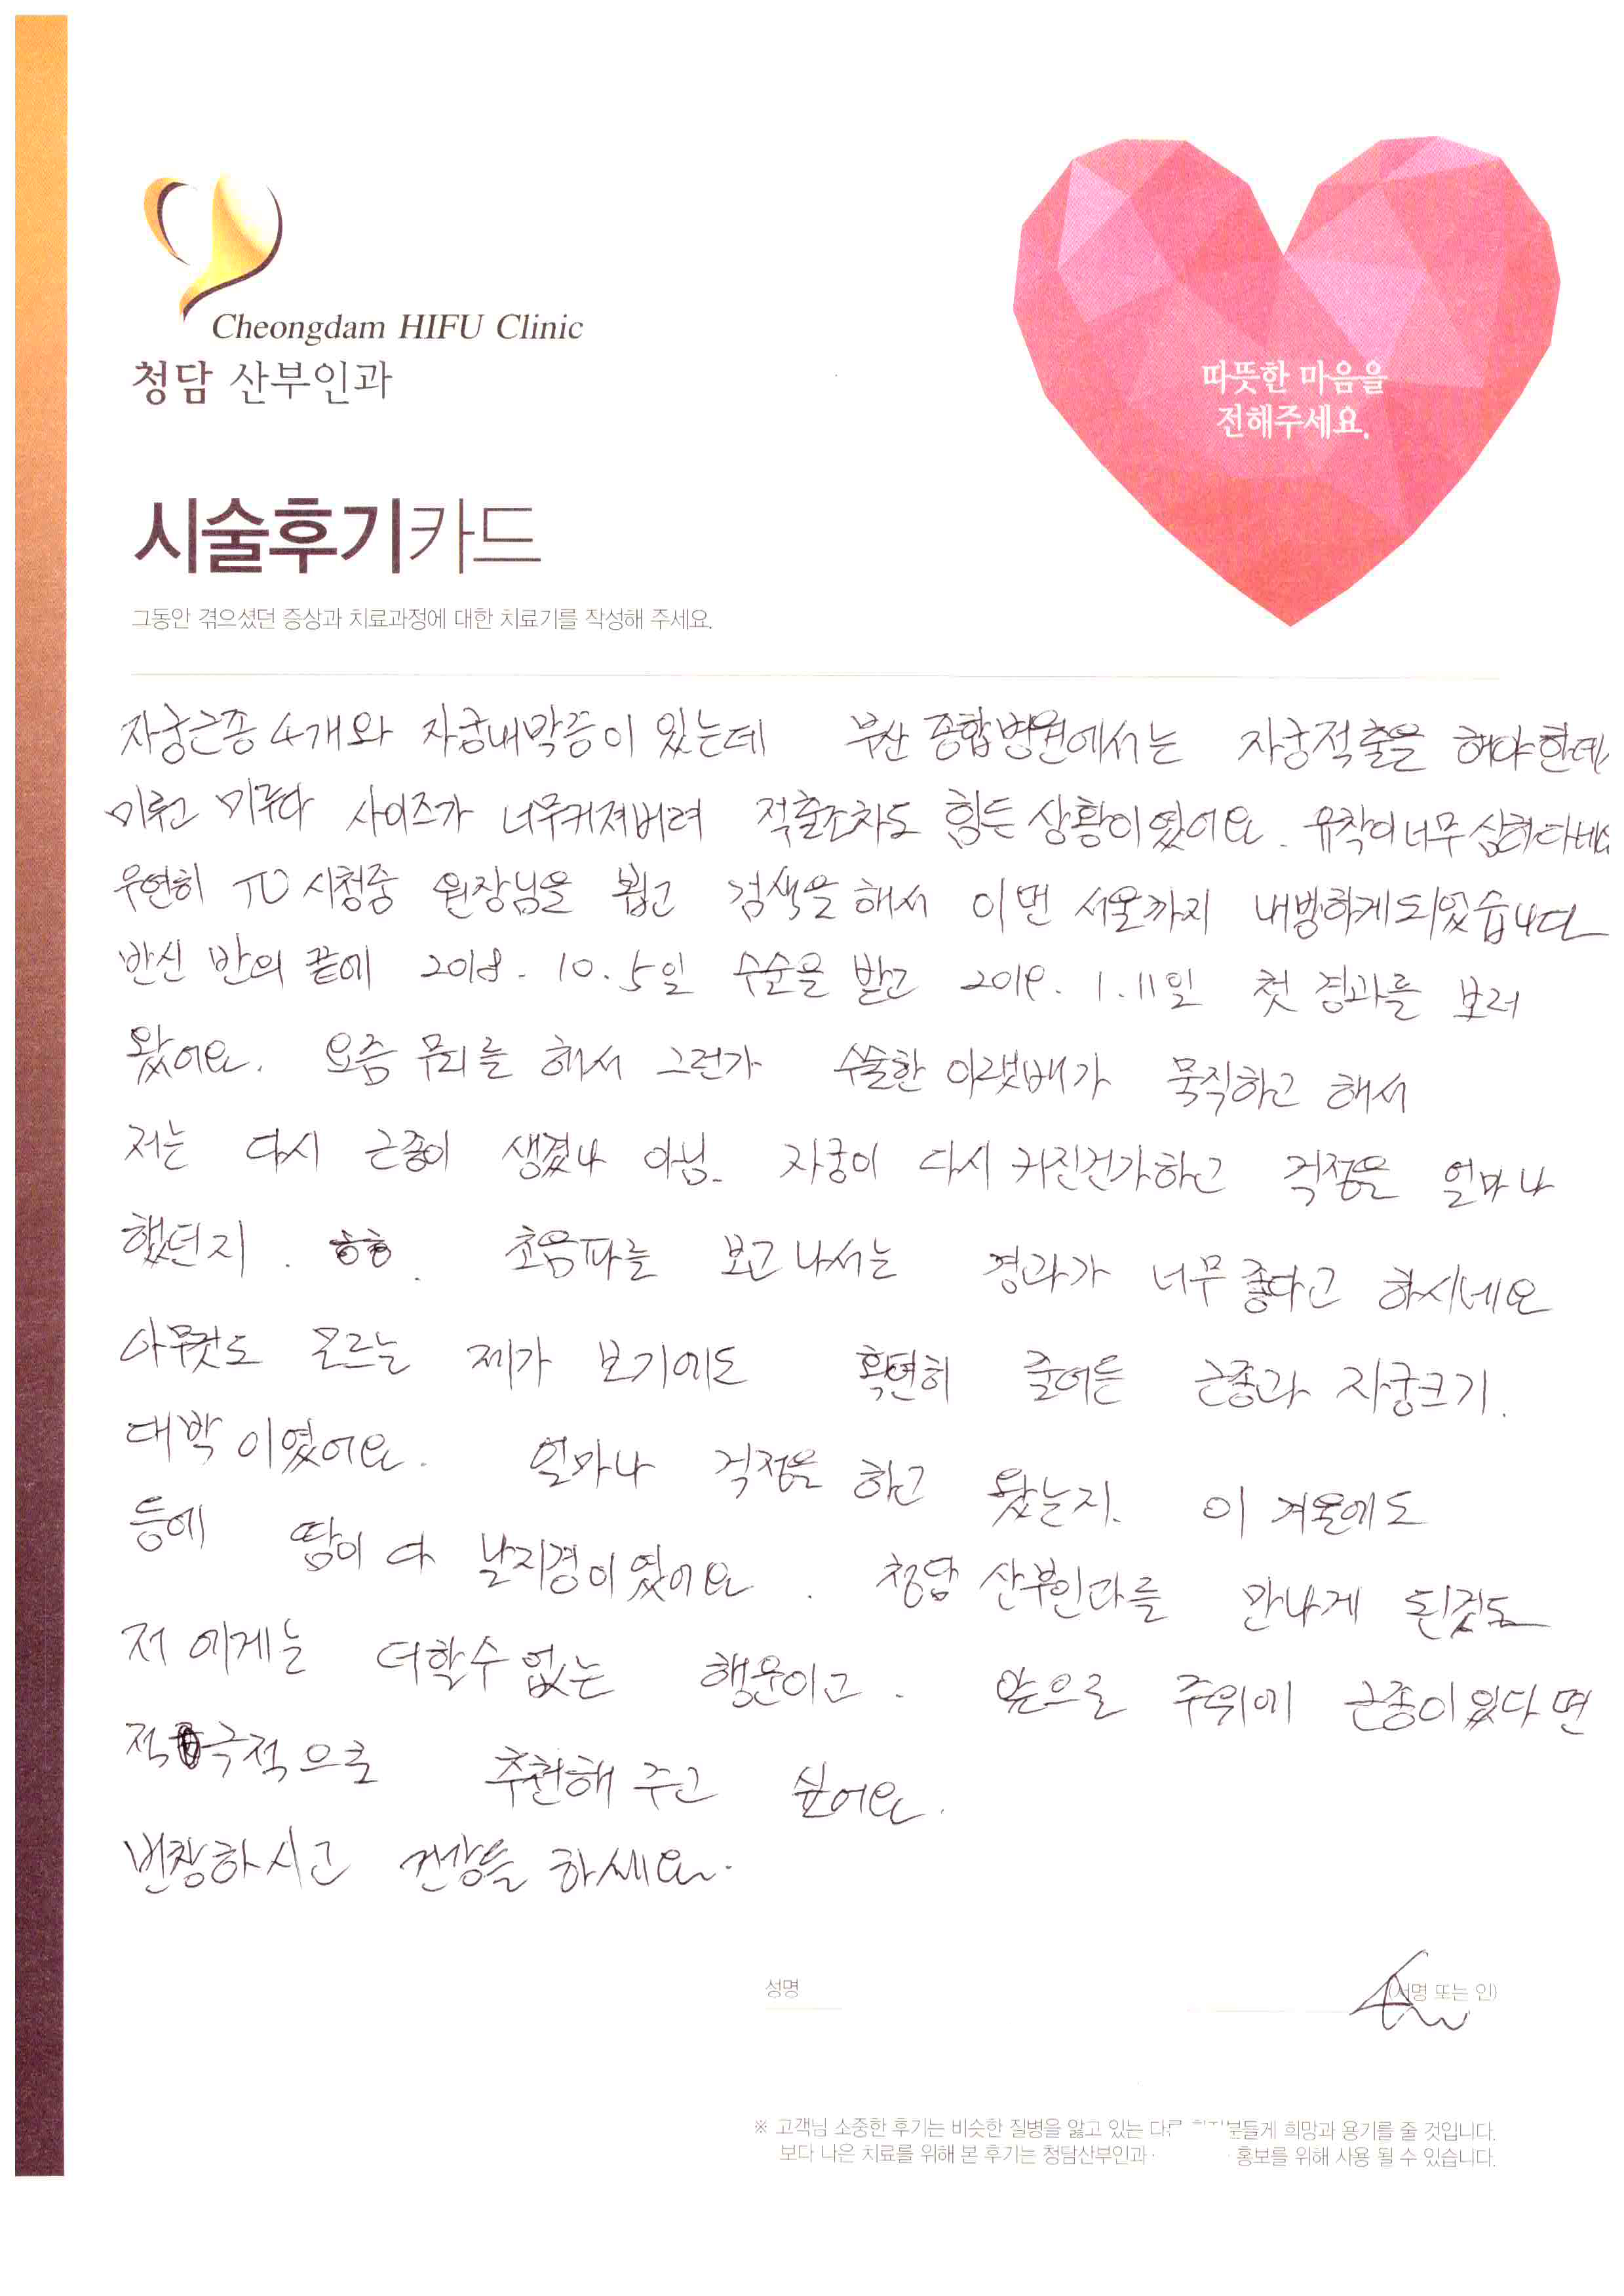 Cheongdam HIFU Clinic
청담 산부인과
따뜻한 마음을
전해주세요.
시술후기카드
그동안 겪으셨던 증상과 치료과정에 대한 치료기를 작성해 주세요.
자궁근종 4개와 자궁내막증이 있는데 부산 종합병원에서는 자궁적출을 해야한데
미루고 미루다 사이즈가 너무커져버려 적출조차도 힘든 상황이였어요. 유착이너무 심하다네요
우연히 TV 시청중 원장님을 뵙고 검색을 해서 이먼 서울까지 내방하게되었습니다
반신 반의 끝에 2018. 10. 5일 수순을 받고 2019. 1. 11일 첫 경과를 보러
왔어요. 요즘 무리를 해서 그런가 수술한 아랫배가 묵직하고 해서
저는 다시 근종이 생겼나 아님. 자궁이 다시 커진건가하고 걱정을 얼마나
했던지. ㅎㅎ. 초음파를 보고나서는 경과가 너무좋다고 하시네요
아무것도 모르는 제가 보기에도 확연히 줄어든 근종과 자궁크기.
대박이였어요. 얼마나 걱정을 하고 왔는지. 이 겨울에도
등에 땀이 다 날지경이였어요. 청담 산부인과를 만나게 된것도
저에게는 더할수 없는 행운이고. 앞으로 주위에 근종이있다면
적극적으로 추천해 주고 싶어요.
번창하시고 건강들 하세요.
성명
(서명 또는 인)
※ 고객님 소중한 후기는 비슷한 질병을 앓고 있는 다른 환자분들게 희망과 용기를 줄 것입니다.
보다 나은 치료를 위해 본 후기는 청담산부인과 홍보를 위해 사용 될 수 있습니다.